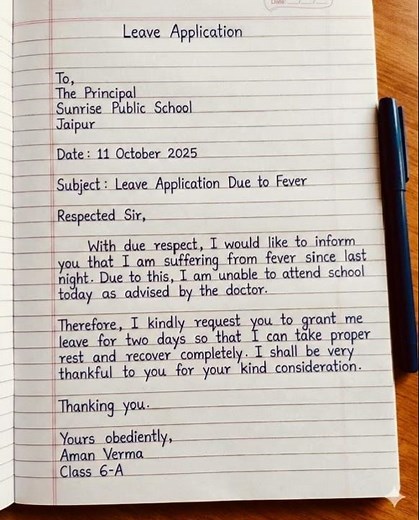 Leave Application
To,
The Principal
Sunrise Public School
Jaipur
Date: 11 October 2025
Subject: Leave Application Due to Fever
Respected Sir,
With due respect, I would like to inform
you that I am suffering from fever since last
night. Due to this, I am unable to attend school
today as advised by the doctor.
Therefore, I kindly request you to grant me
leave for two days so that I can take proper
rest and recover completely. I shall be very
thankful to you for your kind consideration.
Thanking you.
Yours obediently,
Aman Verma
Class 6-A